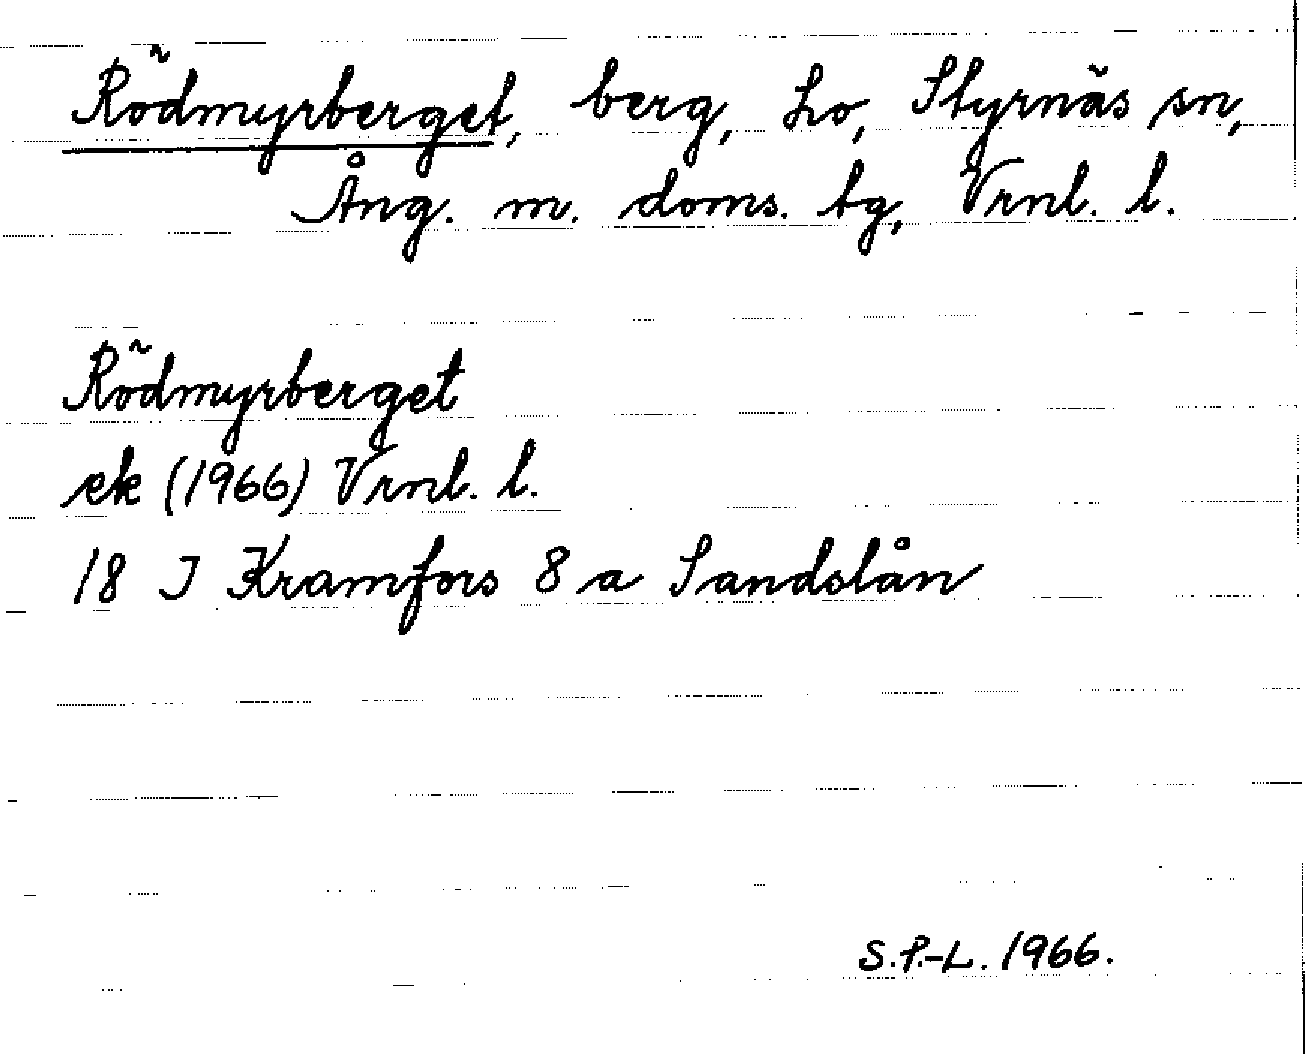 Rödmyrberget, berg, Lo, Styrnäs sn,
Ång. m. doms. tg, Vrnl. l.
Rödmyrberget
ek (1966) Vrnl. l.
18 J Kramfors 8 a Sandslån
S.P.-L. 1966.